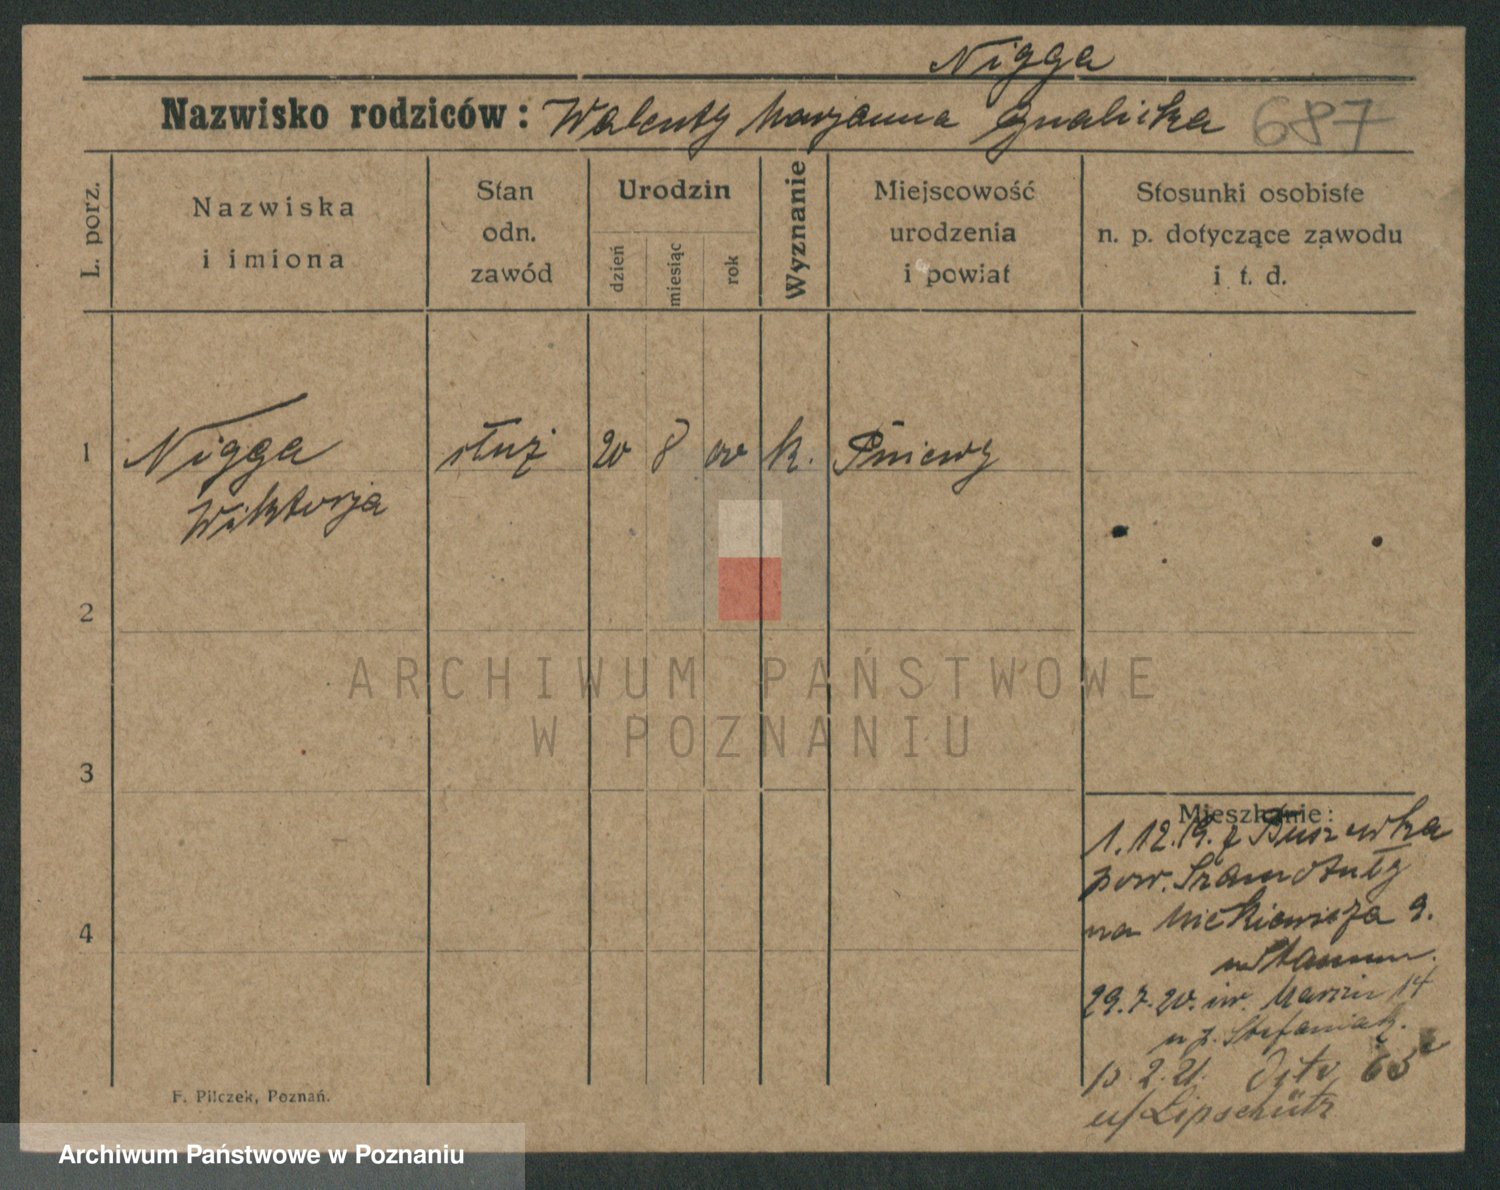 Nigga
Nazwisko rodziców: Walenty Marjanna Gnalicka
687
L. porz.
Nazwiska
i imiona
Stan
odn.
zawód
Urodzin
dzień
miesiąc
rok
Wyznanie
Miejscowość
urodzenia
i powiat
Stosunki osobiste
n. p. dotyczące zawodu
i t. d.
1
Nigga
Wiktorja
służ
20 8 00 k. Pniewy
2
ARCHIWUM PAŃSTWOWE
W POZNANIU
3
Mieszkanie:
1.12.19. z Buszewka
pow. Szamotuły
na Mickiewicza 9.
4
29.7.20. św. Marcin 14
u p. Stefaniak.
2.21.
u/Lipschütz
F. Pilczek, Poznań.
Archiwum Państwowe w Poznaniu